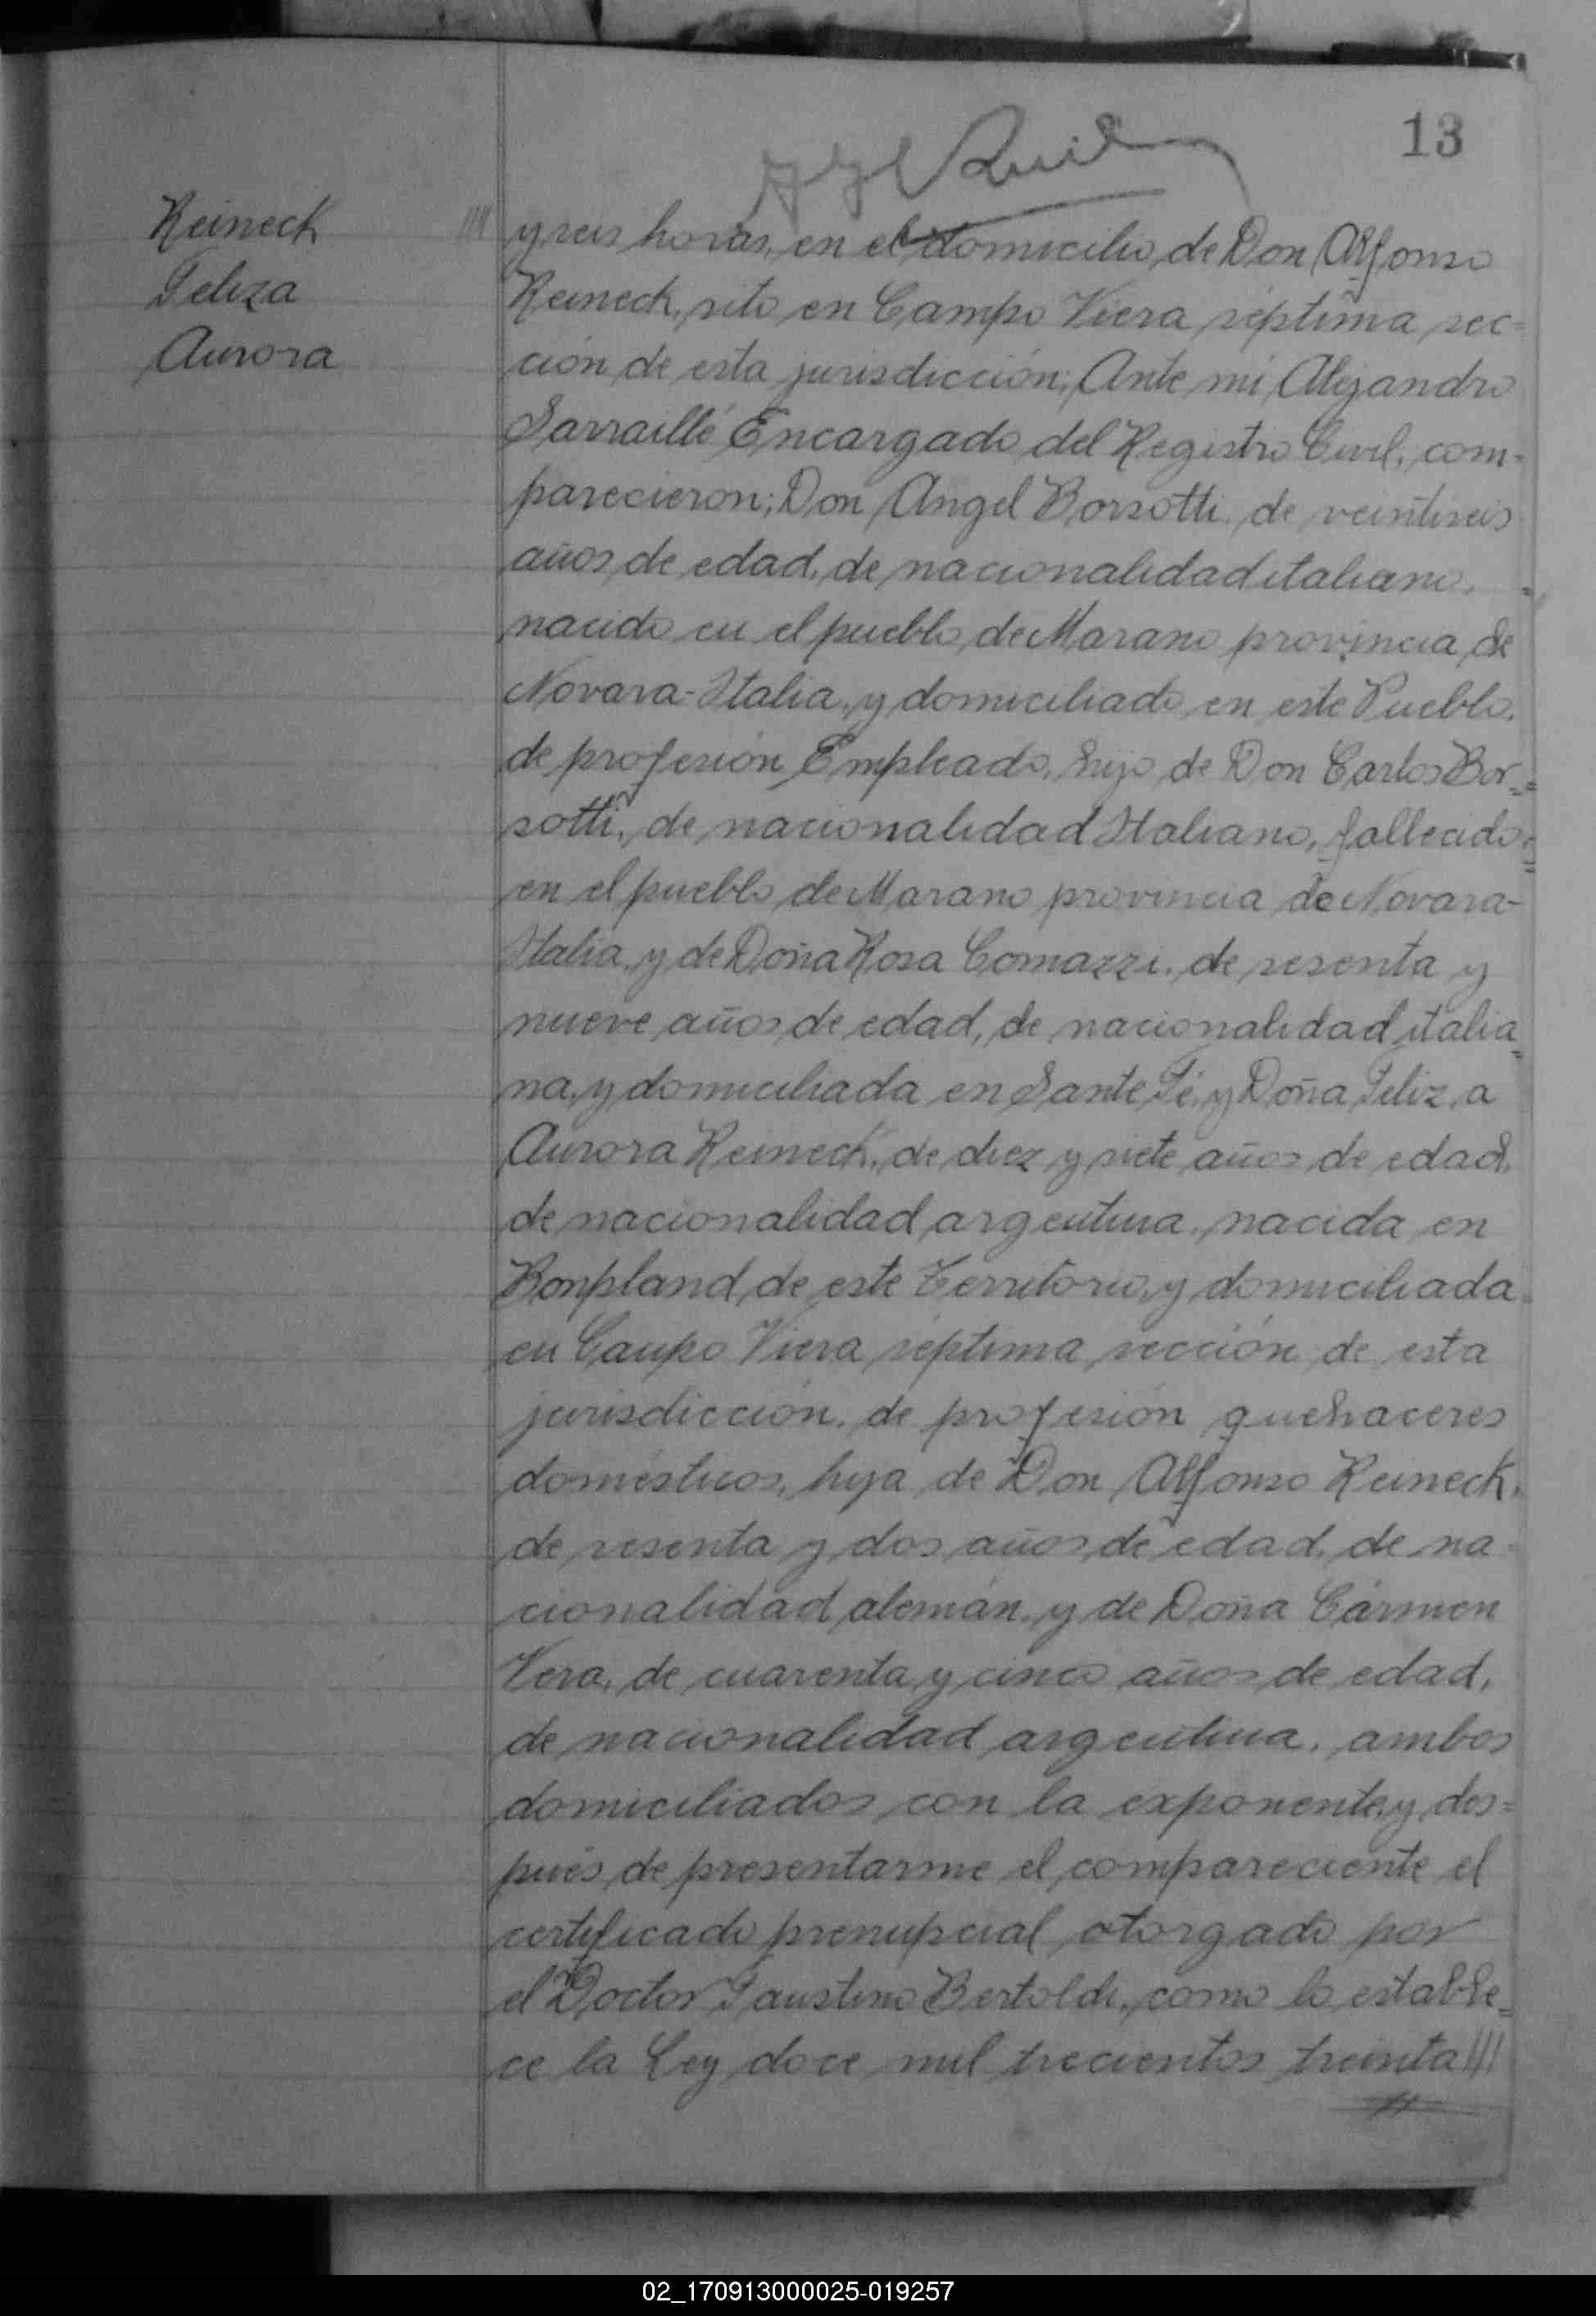 13
Reineck
Feliza
Aurora
//// y seis horas, en el domicilio de Don Alfonso
Reineck, sito en Campo Viera séptima sec=
ción de esta jurisdicción; Ante mi Alejandro
Sarraillé Encargado del Registro Civil, com=
parecieron; Don Angel Borsotti, de veintiseis
años de edad, de nacionalidad italiano,
nacido en el pueblo de Marano provincia de
Novara-Italia, y domiciliado en este Pueblo,
de profesión Empleado, hijo de Don Carlos Bor=
sotti, de nacionalidad Italiano, fallecido=
en el pueblo de Marano provincia de Novara-
Italia, y de Doña Rosa Comazzi, de sesenta y
nueve años de edad, de nacionalidad italia=
na, y domiciliada en Sante Fé, y Doña Feliza
Aurora Reineck, de diez y siete años de edad,
de nacionalidad argentina, nacida en
Bonpland de este Territorio, y domiciliada
en Campo Viera séptima sección de esta
jurisdicción, de profesión quehaceres
domésticos, hija de Don Alfonso Reineck,
de sesenta y dos años de edad, de na=
cionalidad alemán, y de Doña Cármen
Vera, de cuarenta y cinco años de edad,
de nacionalidad argentina, ambos
domiciliados con la exponente, y des=
pués de presentarme el compareciente el
certificado prenupcial otorgado por
el Doctor Faustino Bertoldi, como lo estable=
ce la Ley doce mil trecientos treinta ///
02_170913000025-019257